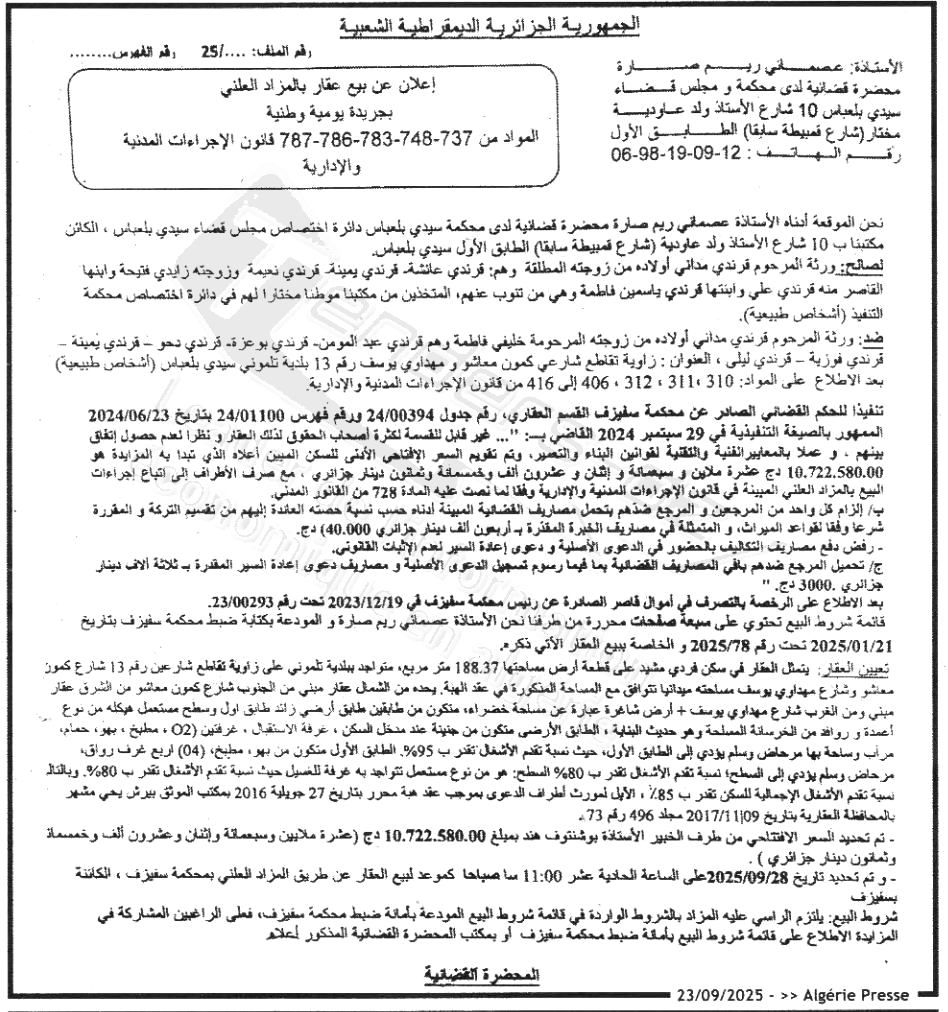 الجمهورية الجزائرية الديمقراطية الشعبية
رقم الملف: ..../25 رقم الفهرس........
الأستاذة: عصماني ريم صارة
محضرة قضائية لدى محكمة و مجلس قضاء
سيدي بلعباس 10 شارع الأستاذ ولد عاودية
مختار(شارع قمبيطة سابقا) الطابق الأول
رقم الهاتف : 12-09-19-98-06
إعلان عن بيع عقار بالمزاد العلني
بجريدة يومية وطنية
المواد من 737-748-783-786-787 قانون الإجراءات المدنية
والإدارية
نحن الموقعة أدناه الأستاذة عصماني ريم صارة محضرة قضائية لدى محكمة سيدي بلعباس دائرة اختصاص مجلس قضاء سيدي بلعباس ، الكائن
مكتبنا ب 10 شارع الأستاذ ولد عاودية (شارع قمبيطة سابقا) الطابق الأول سيدي بلعباس.
لصالح: ورثة المرحوم قرندي مداني أولاده من زوجته المطلقة وهم: قرندي عائشة- قرندي يمينة- قرندي نعيمة وزوجته زايدي فتيحة وابنها
القاصر منه قرندي علي وابنتها قرندي ياسمين فاطمة وهي من تنوب عنهم، المتخذين من مكتبنا موطنا مختارا لهم في دائرة اختصاص محكمة
التنفيذ (أشخاص طبيعية).
ضد: ورثة المرحوم قرندي مداني أولاده من زوجته المرحومة خليفي فاطمة وهم قرندي عبد المومن- قرندي بوعزة- قرندي دحو – قرندي يمينة –
قرندي فوزية – قرندي ليلى ، العنوان : زاوية تقاطع شارعي كمون معاشو و مهداوي يوسف رقم 13 بلدية تلموني سيدي بلعباس (أشخاص طبيعية)
بعد الاطلاع على المواد: 310 ،311 ، 312 ، 406 إلى 416 من قانون الإجراءات المدنية والإدارية.
تنفيذا للحكم القضائي الصادر عن محكمة سفيزف القسم العقاري، رقم جدول 24/00394 ورقم فهرس 24/01100 بتاريخ 2024/06/23
الممهور بالصيغة التنفيذية في 29 سبتمبر 2024 القاضي بــ: "... غير قابل للقسمة لكثرة أصحاب الحقوق لذلك العقار و نظرا لعدم حصول إتفاق
بينهم ، و عملا بالمعاييرالفنية والتقنية لقوانين البناء والتعمير، وتم تقويم السعر الإفتتاحي الأدنى للسكن المبين أعلاه الذي تبدا به المزايدة هو
10.722.580.00 دج عشرة ملاين و سبعمائة و إثنان و عشرون ألف وخمسمائة وثمانون دينار جزائري ، مع صرف الأطراف إلى إتباع إجراءات
البيع بالمزاد العلني المبينة في قانون الإجراءات المدنية والإدارية وفقا لما نصت عليه المادة 728 من القانون المدني.
ب/ إلزام كل واحد من المرجعين و المرجع ضدهم بتحمل مصاريف القضائية المبينة أدناه حسب نسبة حصته العائدة إليهم من تقسيم التركة و المقررة
شرعا وفقا لقواعد الميراث، و المتمثلة في مصاريف الخبرة المقدرة بـ أربعون ألف دينار جزائري (40.000) دج.
- رفض دفع مصاريف التكاليف بالحضور في الدعوى الأصلية و دعوى إعادة السير لعدم الإثبات القانوني.
ج/ تحميل المرجع ضدهم باقي المصاريف القضائية بما فيها رسوم تسجيل الدعوى الأصلية و مصاريف دعوى إعادة السير المقدرة بـ ثلاثة آلاف دينار
جزائري .3000 دج. "
بعد الاطلاع على الرخصة بالتصرف في أموال قاصر الصادرة عن رئيس محكمة سفيزف في 2023/12/19 تحت رقم 23/00293.
قائمة شروط البيع تحتوي على سبعة صفحات محررة من طرفنا نحن الأستاذة عصماني ريم صارة و المودعة بكتابة ضبط محكمة سفيزف بتاريخ
2025/01/21 تحت رقم 2025/78 و الخاصة ببيع العقار الآتي ذكره.
تعيين العقار: يتمثل العقار في سكن فردي مشيد على قطعة أرض مساحتها 188.37 متر مربع، متواجد ببلدية تلموني على زاوية تقاطع شارعين رقم 13 شارع كمون
معاشو وشارع مهداوي يوسف مساحته ميدانيا تتوافق مع المساحة المذكورة في عقد الهبة. يحده من الشمال عقار مبني من الجنوب شارع كمون معاشو من الشرق عقار
مبني ومن الغرب شارع مهداوي يوسف + أرض شاغرة عبارة عن مساحة خضراء، متكون من طابقين طابق أرضي زائد طابق اول وسطح مستعمل هيكله من نوع
أعمدة و روافد من الخرسانة المسلحة وهو حديث البناية ، الطابق الأرضي متكون من جنينة عند مدخل السكن ، غرفة الاستقبال ، غرفتين (O2 ، مطبخ ، بهو، حمام،
مرآب وساحة بها مرحاض وسلم يؤدي إلى الطابق الأول، حيث نسبة تقدم الأشغال تقدر ب 95%. الطابق الأول متكون من بهو، مطبخ، (04) اربع غرف رواق،
مرحاض وسلم يؤدي إلى السطح؛ نسبة تقدم الأشغال تقدر ب 80% السطح: هو من نوع مستعمل تتواجد به غرفة للغسيل حيث نسبة تقدم الأشغال تقدر ب 80%. وبالتالي
نسبة تقدم الأشغال الإجمالية للسكن تقدر ب 85٪ ، الأيل لمورث أطراف الدعوى بموجب عقد هبة محرر بتاريخ 27 جويلية 2016 بمكتب الموثق بيرش يحي مشهر
بالمحافظة العقارية بتاريخ 09|2017/11 مجلد 496 رقم 73.
- تم تحديد السعر الافتتاحي من طرف الخبير الأستاذة بوشنتوف هند بمبلغ 10.722.580.00 دج (عشرة ملايين وسبعمائة وإثنان وعشرون ألف وخمسمائة
وثمانون دينار جزائري ) .
- و تم تحديد تاريخ 2025/09/28على الساعة الحادية عشر 11:00 سا صباحا كموعد لبيع العقار عن طريق المزاد العلني بمحكمة سفيزف ، الكائنة
بسفيزف
شروط البيع: يلتزم الراسي عليه المزاد بالشروط الواردة في قائمة شروط البيع المودعة بأمانة ضبط محكمة سفيزف، فعلى الراغبين المشاركة في
المزايدة الاطلاع على قائمة شروط البيع بأمانة ضبط محكمة سفيزف أو بمكتب المحضرة القضائية المذكور أعلاه
المحضرة القضائية
23/09/2025 - >> Algérie Presse